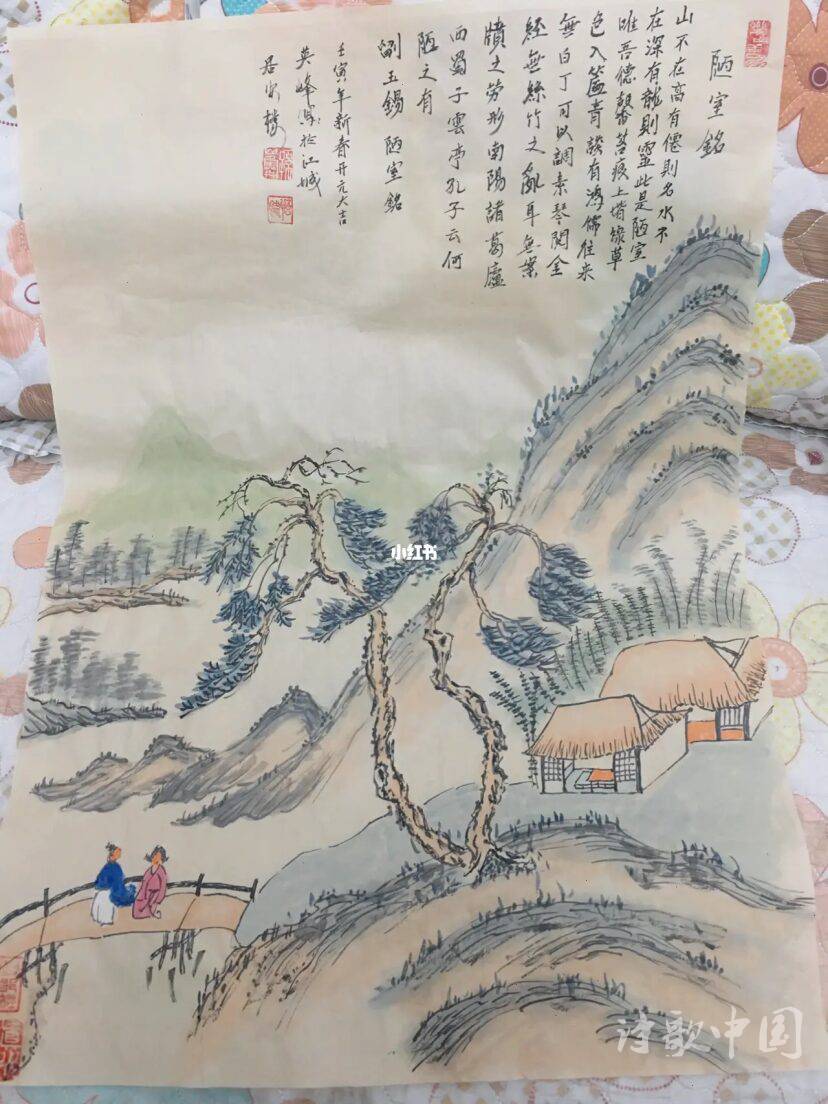 陋室銘
山不在高有僊則名水不
在深有龍則靈此是陋室
唯吾德馨苔痕上堦綠草
色入簾青談有鴻儒往来
無白丁可以調素琴閱金
經無絲竹之亂耳無案
牘之勞形南陽諸葛廬
西蜀子雲亭孔子云何
陋之有
劉玉錫 陋室銘
壬寅年新春开元大吉
英峰於江城
小红书
诗歌中国